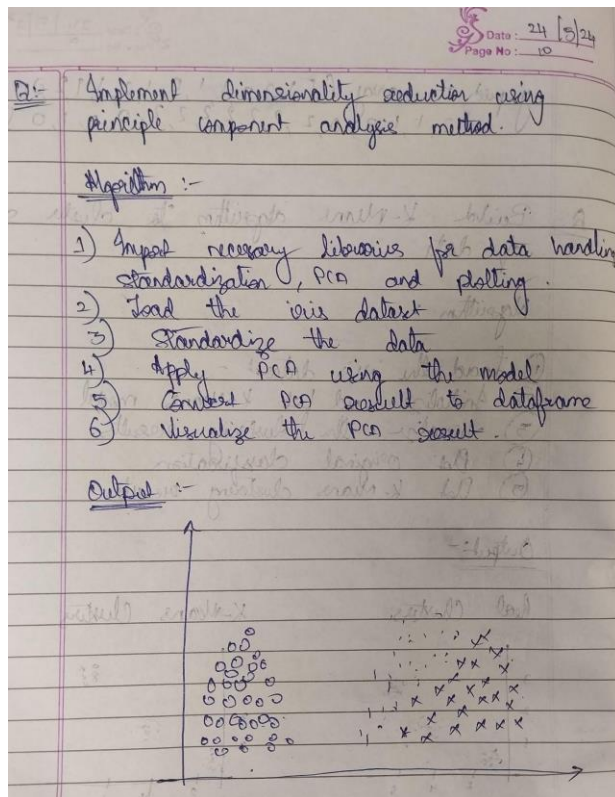 Date: 24/5/24
Page No: 10
Q:- Implement dimensionality reduction using
principle component analysis method.
Algorithm :-
1) Import necessary libraries for data handling
standardization, PCA and plotting.
2) Load the iris dataset
3) Standardize the data
4) Apply PCA using the model
5) Convert PCA result to dataframe
6) Visualize the PCA result.
Output :-